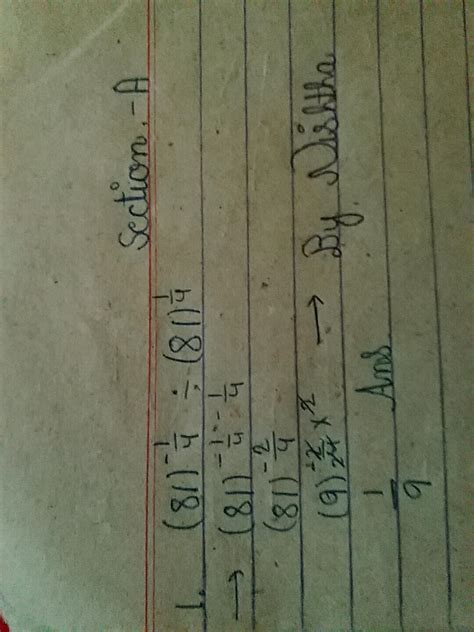 Section - A
1. (81)^{-1/4} ÷ (81)^{1/4}
→ (81)^{-1/4 - 1/4}
(81)^{-2/4}
(9)^{-2/24 × 2} → By Nishtha
1/9 Ans